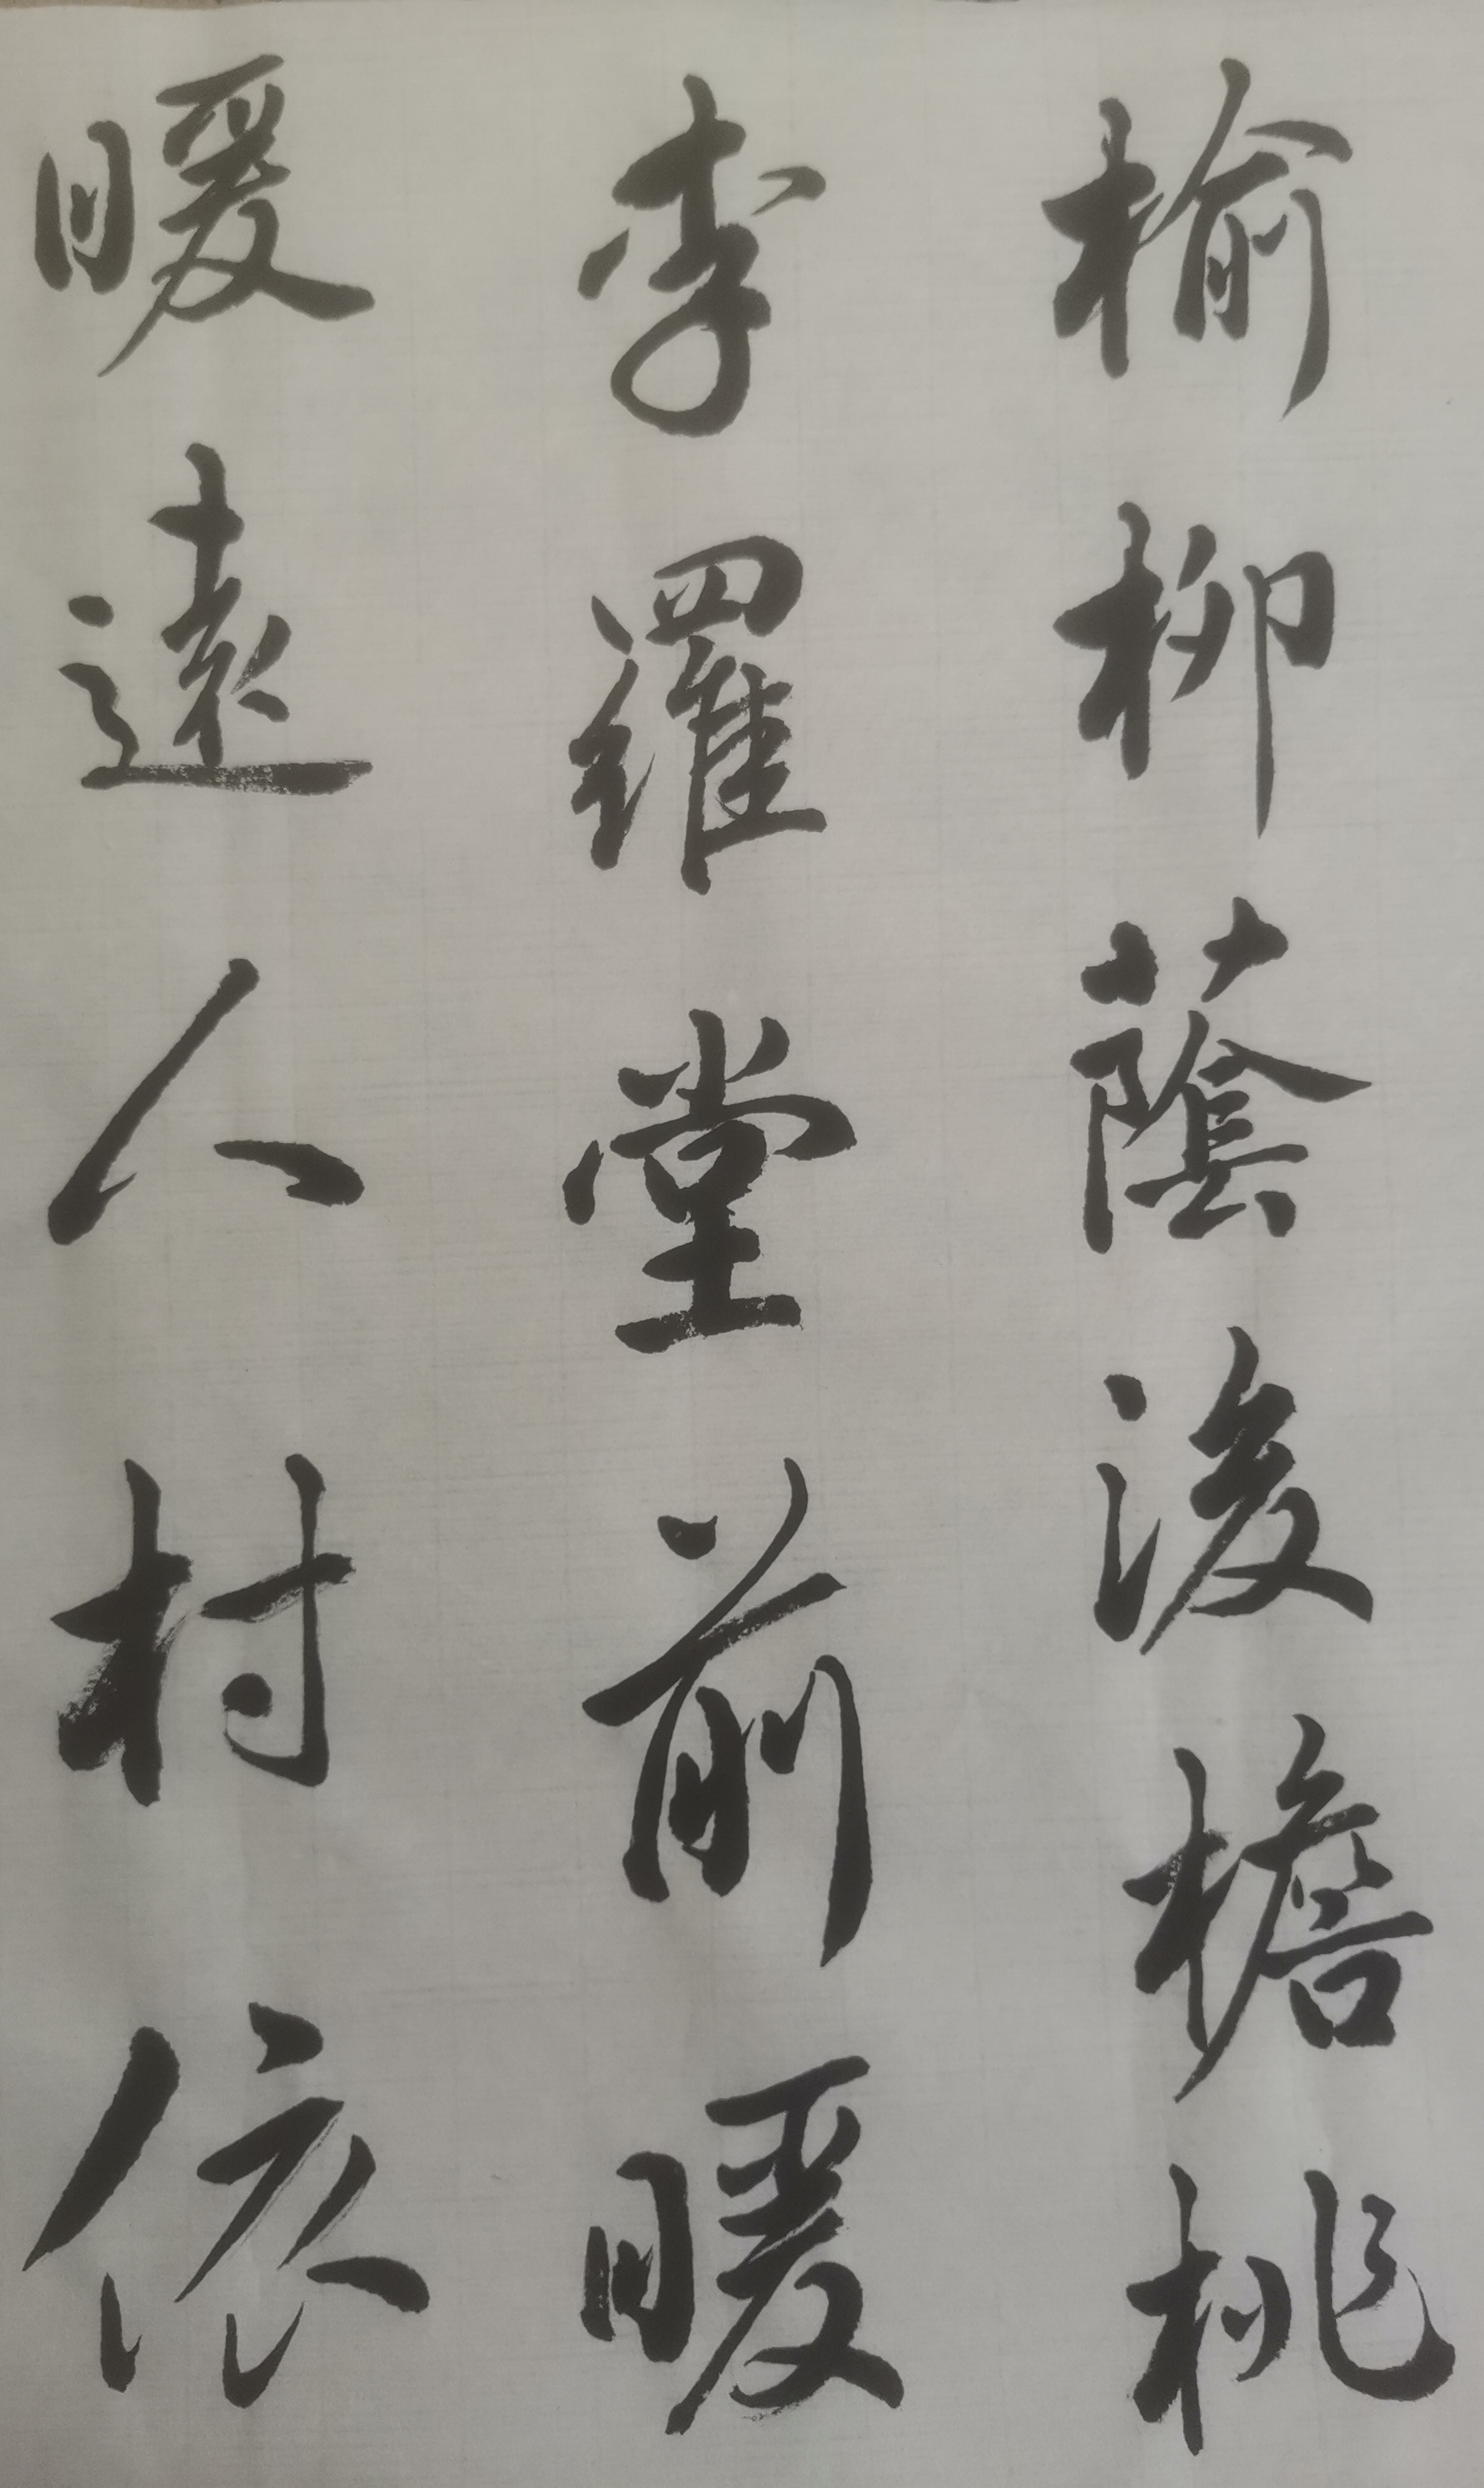 榆柳蔭後檐桃
李羅堂前暖
暖遠人村依